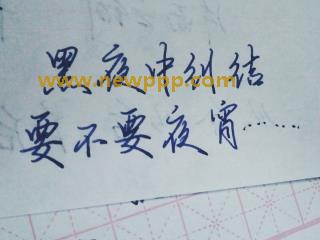 黑夜中纠结
www.newppp.com
要不要夜宵……